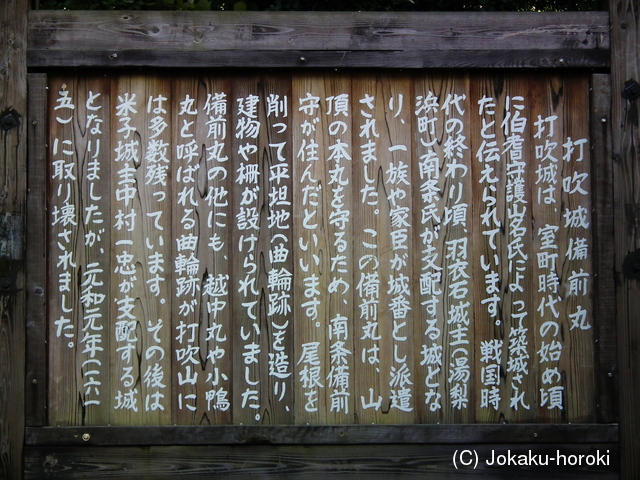 打吹城備前丸
打吹城は、室町時代の始め頃
に伯耆守護山名氏によって築城され
たと伝えられています。戦国時
代の終わり頃、羽衣石城主(湯梨
浜町)南条氏が支配する城とな
り、一族や家臣が城番とし派遣
されました。この備前丸は、山
頂の本丸を守るため、南条備前
守が住んだといいます。尾根を
削って平坦地(曲輪跡)を造り、
建物や柵が設けられていました。
備前丸の他にも、越中丸や小鴨
丸と呼ばれる曲輪跡が打吹山に
は多数残っています。その後は
米子城主中村一忠が支配する城
となりましたが、元和元年(一六一
五)に取り壊されました。
(C) Jokaku-horoki